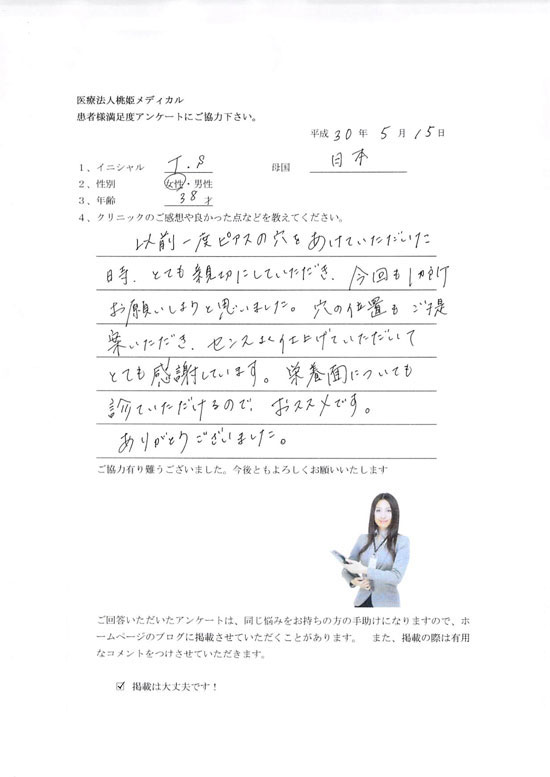 医療法人桃姫メディカル
患者様満足度アンケートにご協力下さい。
平成 30 年 5 月 15 日
1、イニシャル T.S 母国 日本
2、性別 女性・男性
3、年齢 38 才
4、クリニックのご感想や良かった点などを教えてください。
以前一度ピアスの穴をあけていただいた
時、とても親切にしていただき、今回も
お願いしようと思いました。穴の位置もご提
案いただき、センスよく仕上げていただいて
とても感謝しています。栄養面についても
診ていただけるので、おススメです。
ありがとうございました。
ご協力有り難うございました。今後ともよろしくお願いいたします
ご回答いただいたアンケートは、同じ悩みをお持ちの方の手助けになりますので、ホ
ームページのブログに掲載させていただくことがあります。 また、掲載の際は有用
なコメントをつけさせていただきます。
☑ 掲載は大丈夫です！